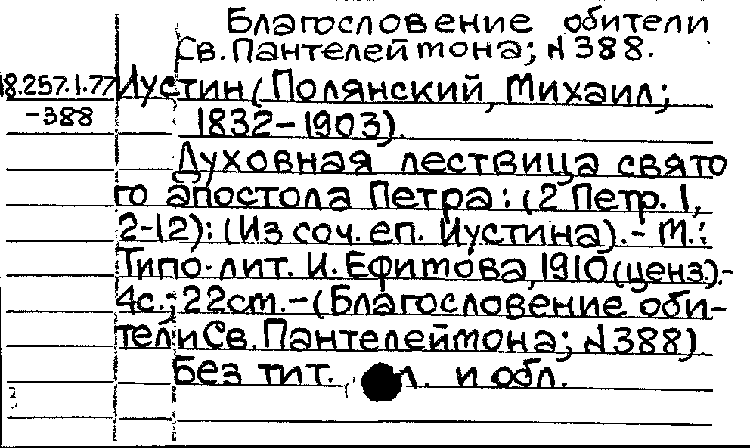 Благословение обители
Св. Пантелеймона; № 388.
18.257.1.77 Иустин (Полянский, Михаил;
-388 1832-1903).
Духовная лествица свято
го апостола Петра: (2 Петр. 1,
2-12): (Из соч. еп. Иустина).- М.:
Типо-лит. И. Ефимова, 1910 (ценз.).-
4с.; 22см.-(Благословение оби-
тели Св. Пантелеймона; № 388)
Без тит. л. и обл.